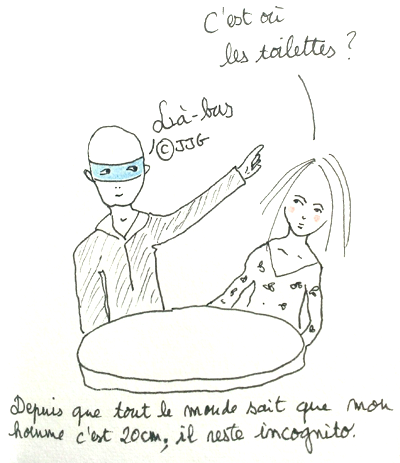 C'est où
les toilettes ?
Là-bas
©JJG
Depuis que tout le monde sait que mon
homme c'est 20cm, il reste incognito.